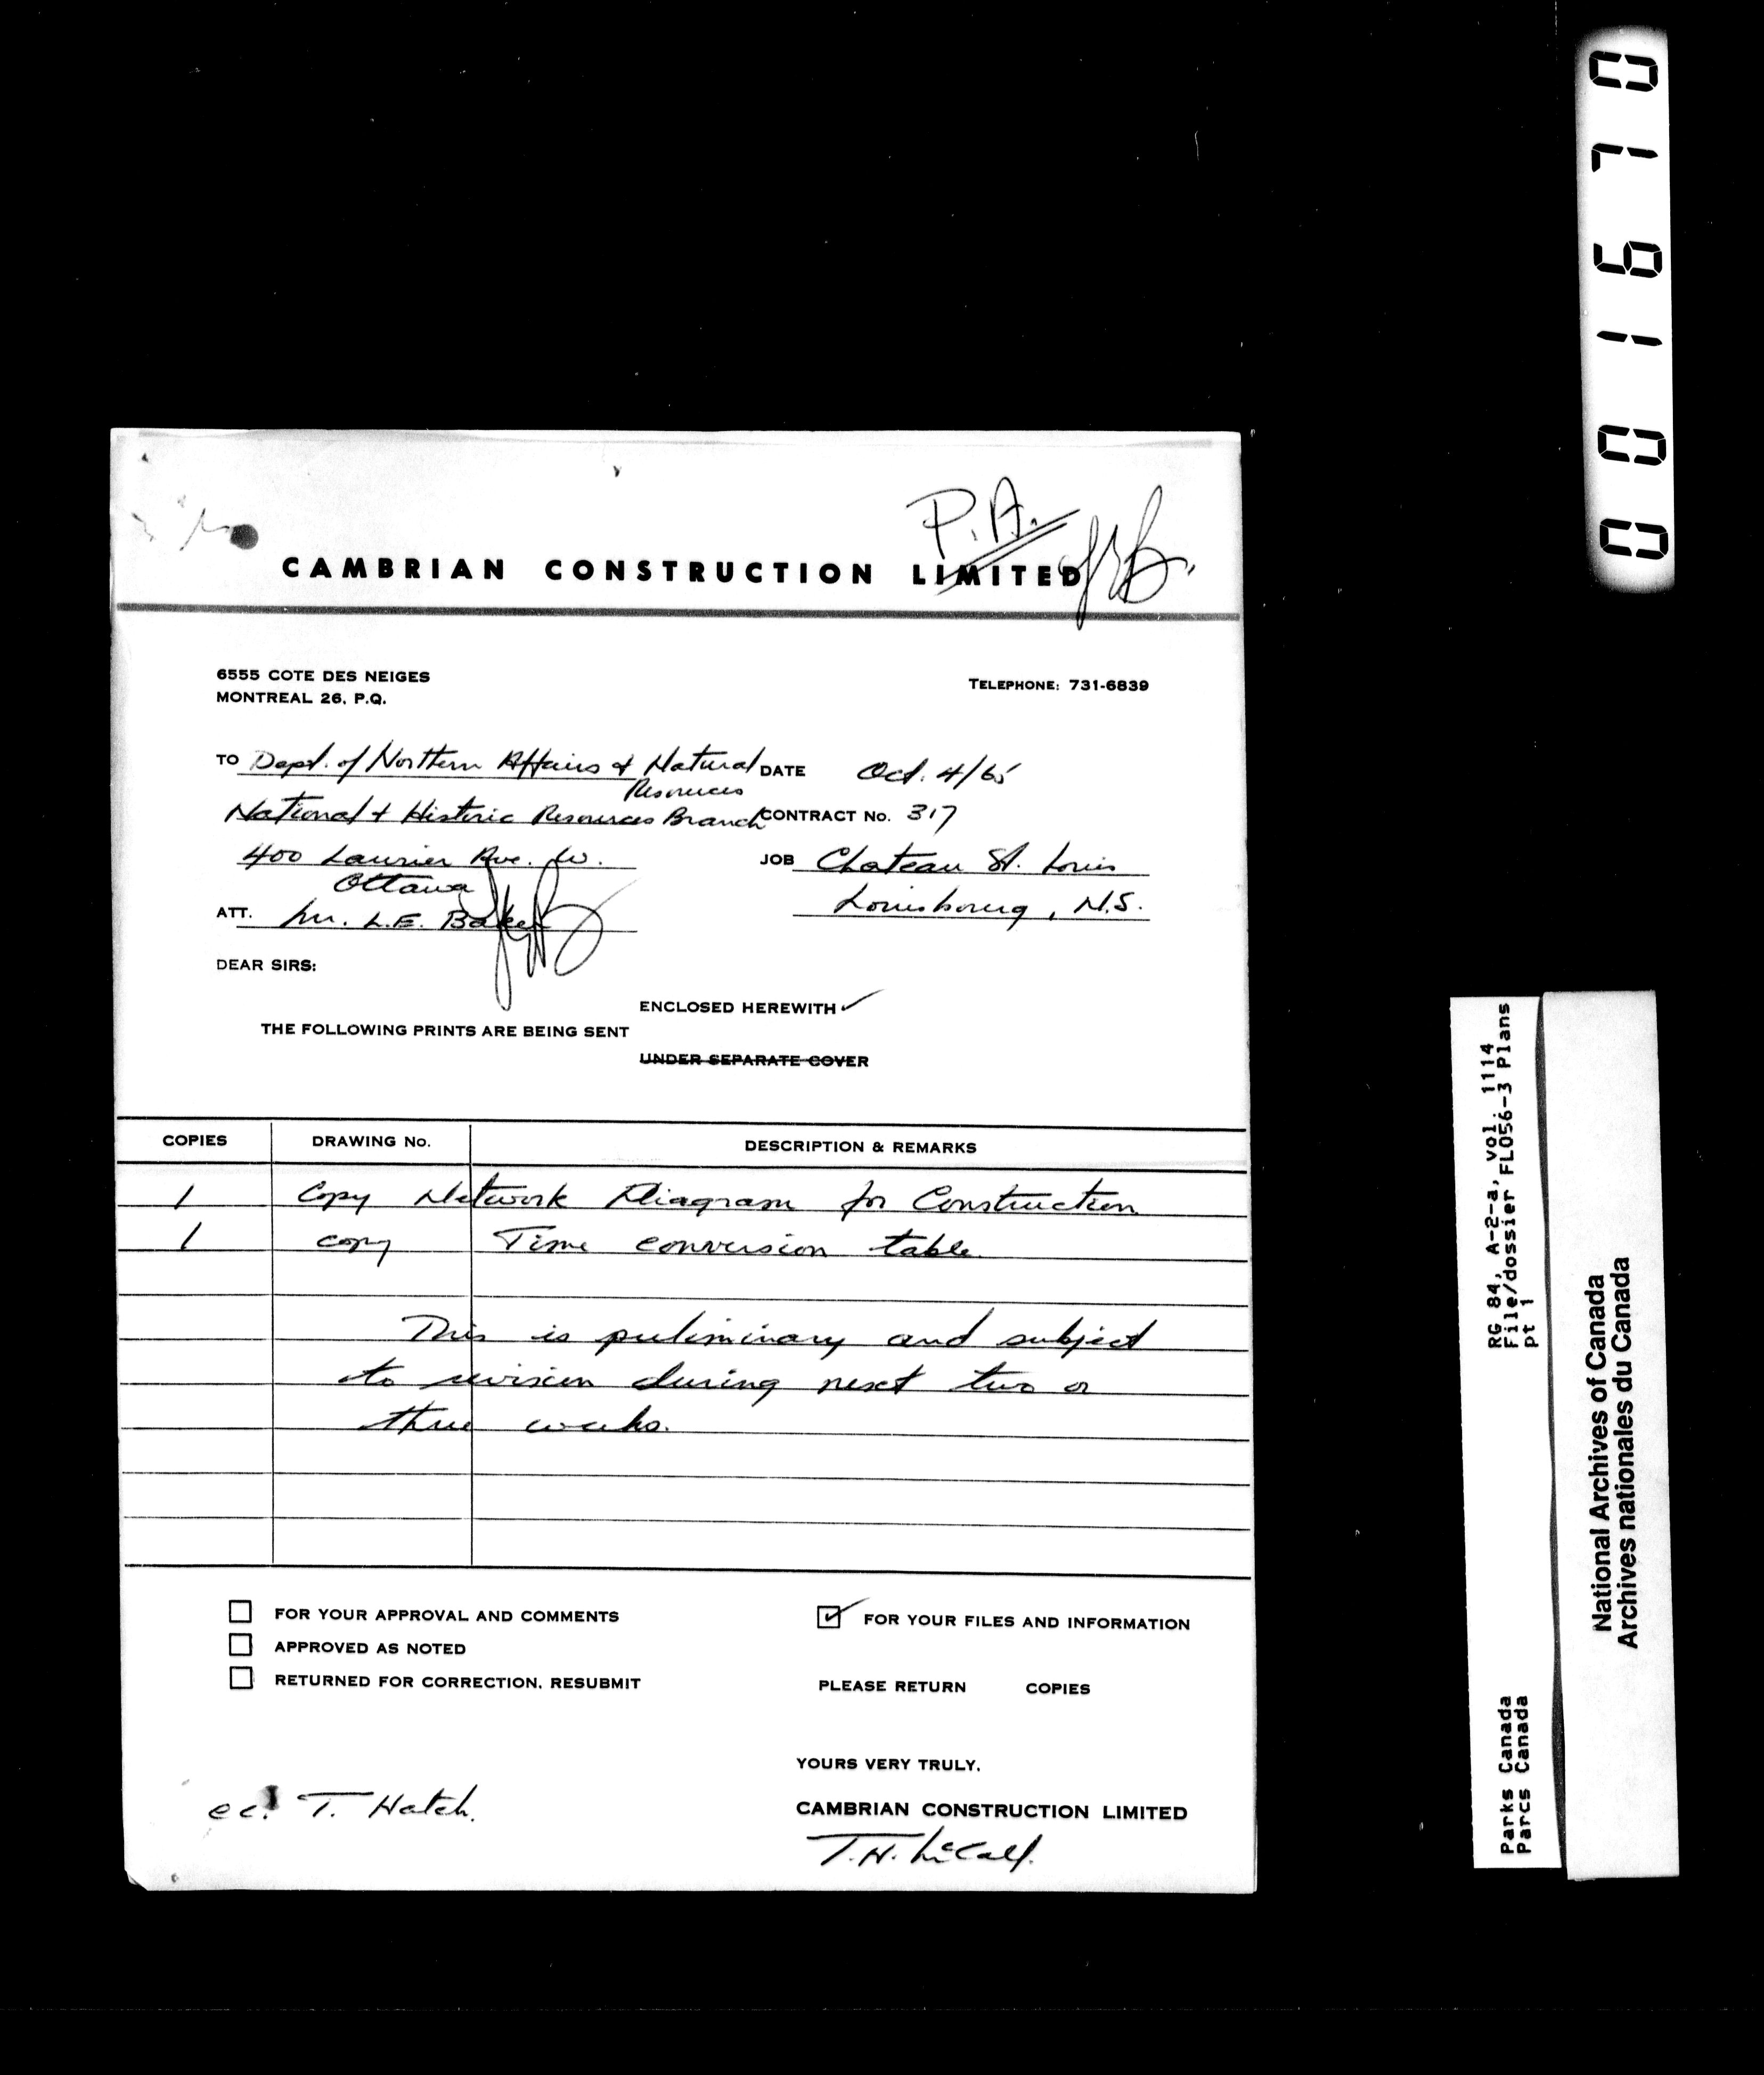 P.A.
CAMBRIAN CONSTRUCTION LIMITED
6555 COTE DES NEIGES
MONTREAL 26, P.Q.
TELEPHONE: 731-6839
TO Dept. of Northern Affairs & Natural
Resources
DATE Oct. 4/65
National & Historic Resources Branch
CONTRACT No. 317
400 Laurier Ave. W.
Ottawa
JOB Chateau St. Louis
Louisbourg, N.S.
ATT. Mr. L.E. Baker
DEAR SIRS:
ENCLOSED HEREWITH ✓
THE FOLLOWING PRINTS ARE BEING SENT
UNDER SEPARATE COVER
COPIES DRAWING No. DESCRIPTION & REMARKS
1 Copy Network Diagram for Construction
1 copy Time conversion table
This is preliminary and subject
to revision during next two or
three weeks.
FOR YOUR APPROVAL AND COMMENTS
APPROVED AS NOTED
RETURNED FOR CORRECTION, RESUBMIT
✓ FOR YOUR FILES AND INFORMATION
PLEASE RETURN COPIES
YOURS VERY TRULY,
CAMBRIAN CONSTRUCTION LIMITED
T.H. McCall.
cc. T. Hatch.
001670
RG 84, A-2-a, vol. 1114
File/dossier FLO56-3 Plans
pt 1
Parks Canada
Parcs Canada
National Archives of Canada
Archives nationales du Canada